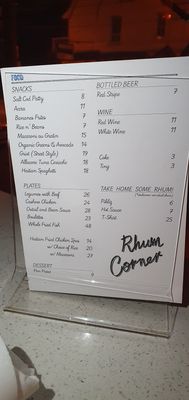 FOOD
SNACKS
Salt Cod Patty 8
Acra 11
Bananes Frites 7
Rice n' Beans 7
Macaroni au Gratin 15
Organic Greens & Avocado 14
Griot (Street Style) 19
Albacore Tuna Ceviche 18
Haitian Spaghetti 18
PLATES
Legumes with Beef 26
Cashew Chicken 24
Oxtail and Bean Sauce 28
Boulettes 23
Whole Fried Fish 48
Haitian Fried Chicken 2pcs 14
w/ Choice of Rice 20
w/ Macaroni 27
DESSERT
Pen Patat 9
BOTTLED BEER
Red Stripe 7
WINE
Red Wine 11
White Wine 11
Coke 3
Ting 3
TAKE HOME SOME, RHUM!
Pikliz 6
Hot Sauce 7
T-Shirt 25
Rhum
Corner